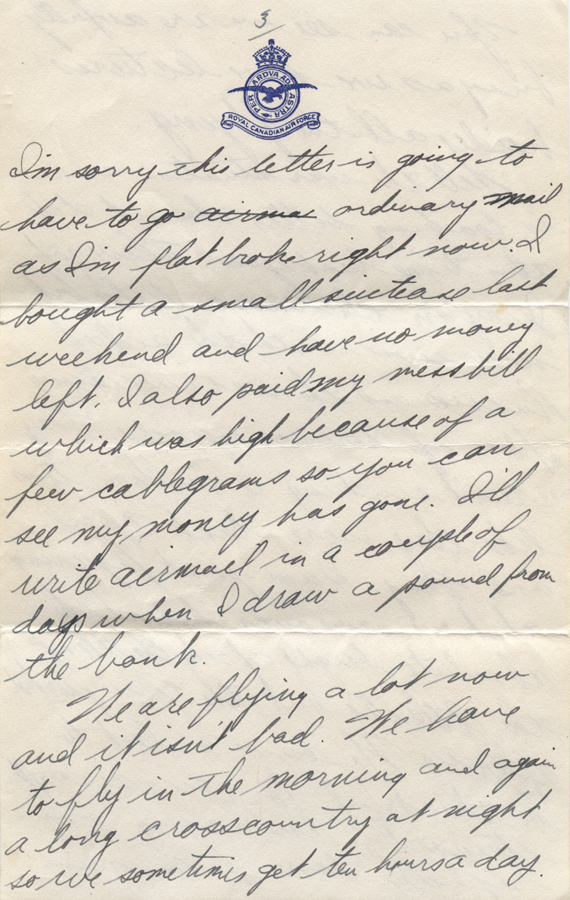 3
PER ARDVA AD ASTRA
ROYAL CANADIAN AIR FORCE
I'm sorry this letter is going to
have to go airmai ordinary mail
as I'm flat broke right now. I
bought a small suitcase last
weekend and have no money
left. I also paid my mess bill
which was high because of a
few cablegrams so you can
see my money has gone. I'll
write airmail in a couple of
days when I draw a pound from
the bank.
We are flying a lot now
and it isn't bad. We have
to fly in the morning and again
a long crosscountry at night
so we sometimes get ten hours a day.